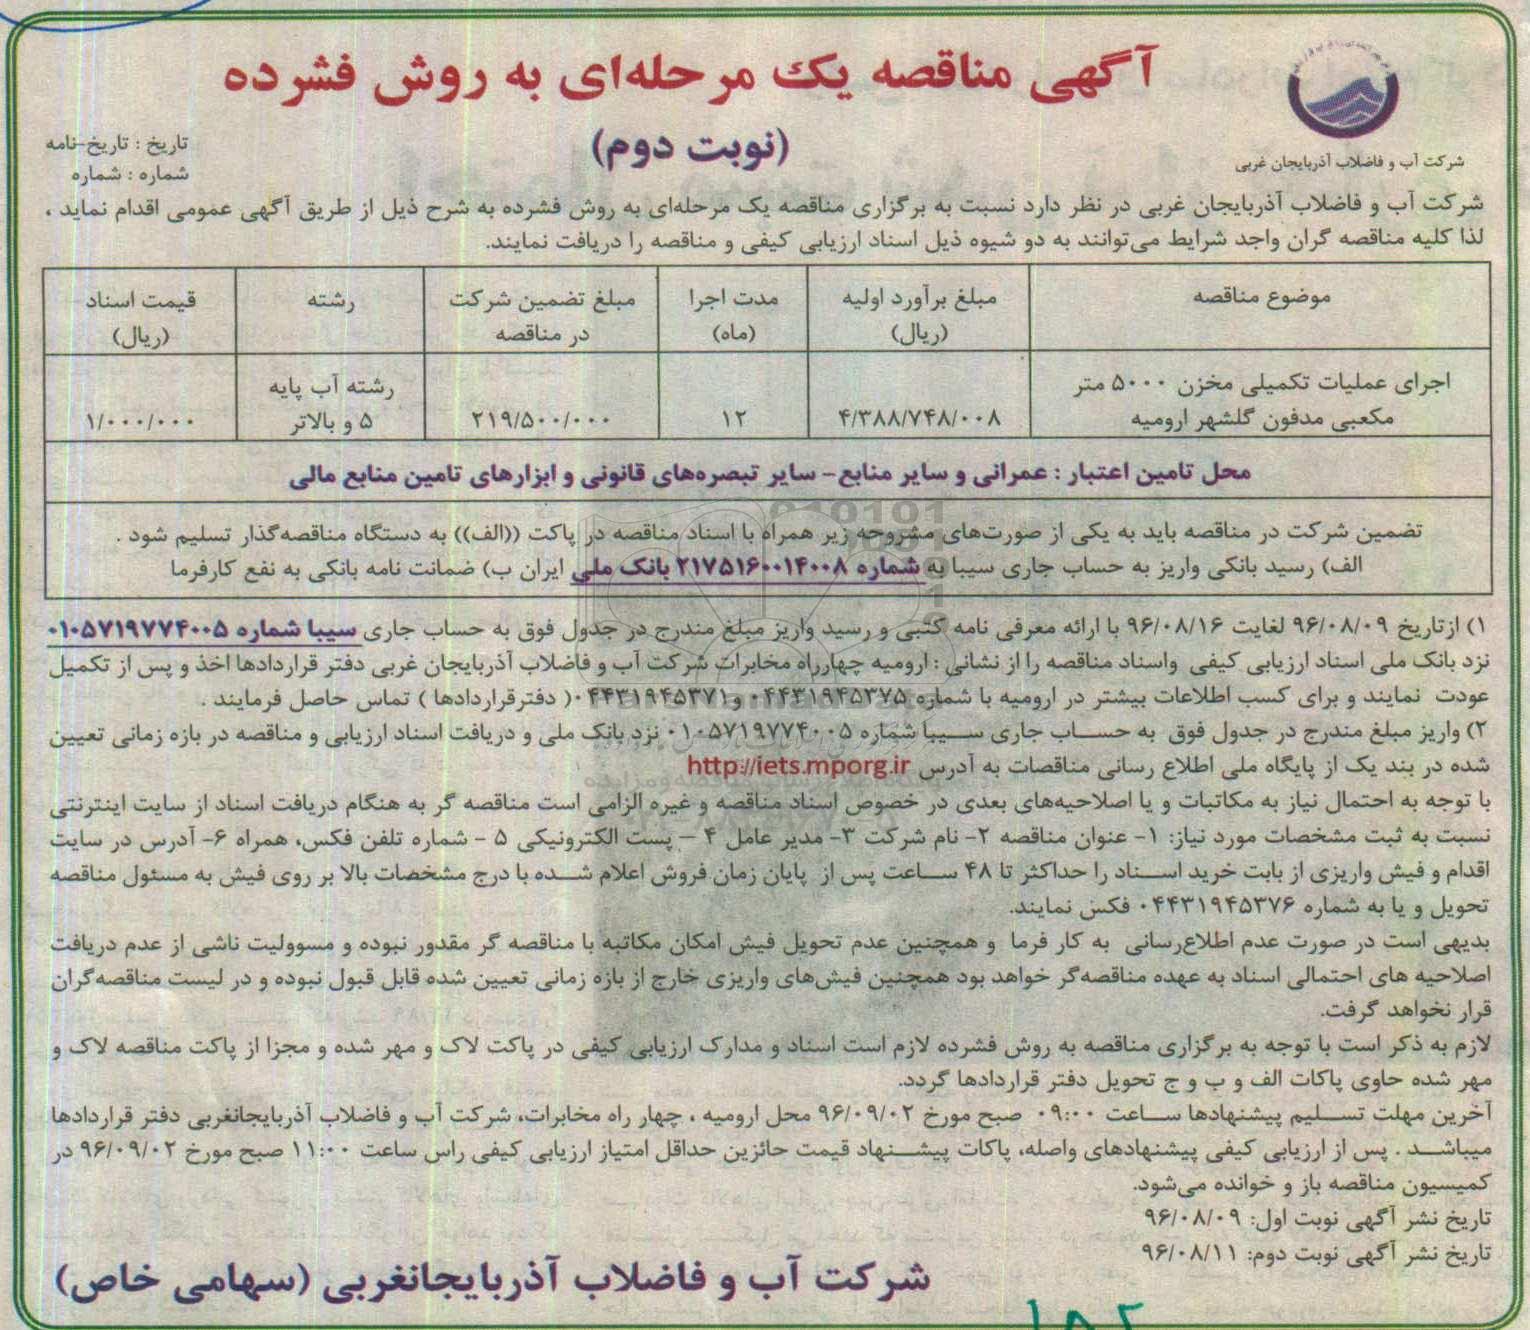 آگهی مناقصه یک مرحله‌ای به روش فشرده
(نوبت دوم)
شرکت آب و فاضلاب آذربایجان غربی
تاریخ : تاریخ-نامه
شماره : شماره
شرکت آب و فاضلاب آذربایجان غربی در نظر دارد نسبت به برگزاری مناقصه یک مرحله‌ای به روش فشرده به شرح ذیل از طریق آگهی عمومی اقدام نماید ،
لذا کلیه مناقصه گران واجد شرایط می‌توانند به دو شیوه ذیل اسناد ارزیابی کیفی و مناقصه را دریافت نمایند.
موضوع مناقصه
مبلغ برآورد اولیه
(ریال)
مدت اجرا
(ماه)
مبلغ تضمین شرکت
در مناقصه
رشته
قیمت اسناد
(ریال)
اجرای عملیات تکمیلی مخزن ۵۰۰۰ متر
مکعبی مدفون گلشهر ارومیه
۴/۳۸۸/۷۴۸/۰۰۸
۱۲
۲۱۹/۵۰۰/۰۰۰
رشته آب پایه
۵ و بالاتر
۱/۰۰۰/۰۰۰
محل تامین اعتبار : عمرانی و سایر منابع- سایر تبصره‌های قانونی و ابزارهای تامین منابع مالی
تضمین شرکت در مناقصه باید به یکی از صورت‌های مشروحه زیر همراه با اسناد مناقصه در پاکت ((الف)) به دستگاه مناقصه‌گذار تسلیم شود .
الف) رسید بانکی واریز به حساب جاری سیبا به شماره ۲۱۷۵۱۶۰۰۱۴۰۰۸ بانک ملی ایران ب) ضمانت نامه بانکی به نفع کارفرما
۱) ازتاریخ ۹۶/۰۸/۰۹ لغایت ۹۶/۰۸/۱۶ با ارائه معرفی نامه کتبی و رسید واریز مبلغ مندرج در جدول فوق به حساب جاری سیبا شماره ۰۱۰۵۷۱۹۷۷۴۰۰۵
نزد بانک ملی اسناد ارزیابی کیفی واسناد مناقصه را از نشانی : ارومیه چهارراه مخابرات شرکت آب و فاضلاب آذربایجان غربی دفتر قراردادها اخذ و پس از تکمیل
عودت نمایند و برای کسب اطلاعات بیشتر در ارومیه با شماره ۰۴۴۳۱۹۴۵۳۷۵ و ۰۴۴۳۱۹۴۵۳۷۱( دفترقراردادها ) تماس حاصل فرمایند .
۲) واریز مبلغ مندرج در جدول فوق به حساب جاری سیبا شماره ۰۱۰۵۷۱۹۷۷۴۰۰۵ نزد بانک ملی و دریافت اسناد ارزیابی و مناقصه در بازه زمانی تعیین
شده در بند یک از پایگاه ملی اطلاع رسانی مناقصات به آدرس http://iets.mporg.ir
با توجه به احتمال نیاز به مکاتبات و یا اصلاحیه‌های بعدی در خصوص اسناد مناقصه و غیره الزامی است مناقصه گر به هنگام دریافت اسناد از سایت اینترنتی
نسبت به ثبت مشخصات مورد نیاز: ۱- عنوان مناقصه ۲- نام شرکت ۳- مدیر عامل ۴ – پست الکترونیکی ۵ - شماره تلفن فکس، همراه ۶- آدرس در سایت
اقدام و فیش واریزی از بابت خرید اسناد را حداکثر تا ۴۸ ساعت پس از پایان زمان فروش اعلام شده با درج مشخصات بالا بر روی فیش به مسئول مناقصه
تحویل و یا به شماره ۰۴۴۳۱۹۴۵۳۷۶ فکس نمایند.
بدیهی است در صورت عدم اطلاع‌رسانی به کار فرما و همچنین عدم تحویل فیش امکان مکاتبه با مناقصه گر مقدور نبوده و مسوولیت ناشی از عدم دریافت
اصلاحیه های احتمالی اسناد به عهده مناقصه‌گر خواهد بود همچنین فیش‌های واریزی خارج از بازه زمانی تعیین شده قابل قبول نبوده و در لیست مناقصه‌گران
قرار نخواهد گرفت.
لازم به ذکر است با توجه به برگزاری مناقصه به روش فشرده لازم است اسناد و مدارک ارزیابی کیفی در پاکت لاک و مهر شده و مجزا از پاکت مناقصه لاک و
مهر شده حاوی پاکات الف و ب و ج تحویل دفتر قراردادها گردد.
آخرین مهلت تسلیم پیشنهادها ساعت ۰۹:۰۰ صبح مورخ ۹۶/۰۹/۰۲ محل ارومیه ، چهار راه مخابرات، شرکت آب و فاضلاب آذربایجانغربی دفتر قراردادها
میباشد . پس از ارزیابی کیفی پیشنهادهای واصله، پاکات پیشنهاد قیمت حائزین حداقل امتیاز ارزیابی کیفی راس ساعت ۱۱:۰۰ صبح مورخ ۹۶/۰۹/۰۲ در
کمیسیون مناقصه باز و خوانده می‌شود.
تاریخ نشر آگهی نوبت اول: ۹۶/۰۸/۰۹
تاریخ نشر آگهی نوبت دوم: ۹۶/۰۸/۱۱
شرکت آب و فاضلاب آذربایجانغربی (سهامی خاص)